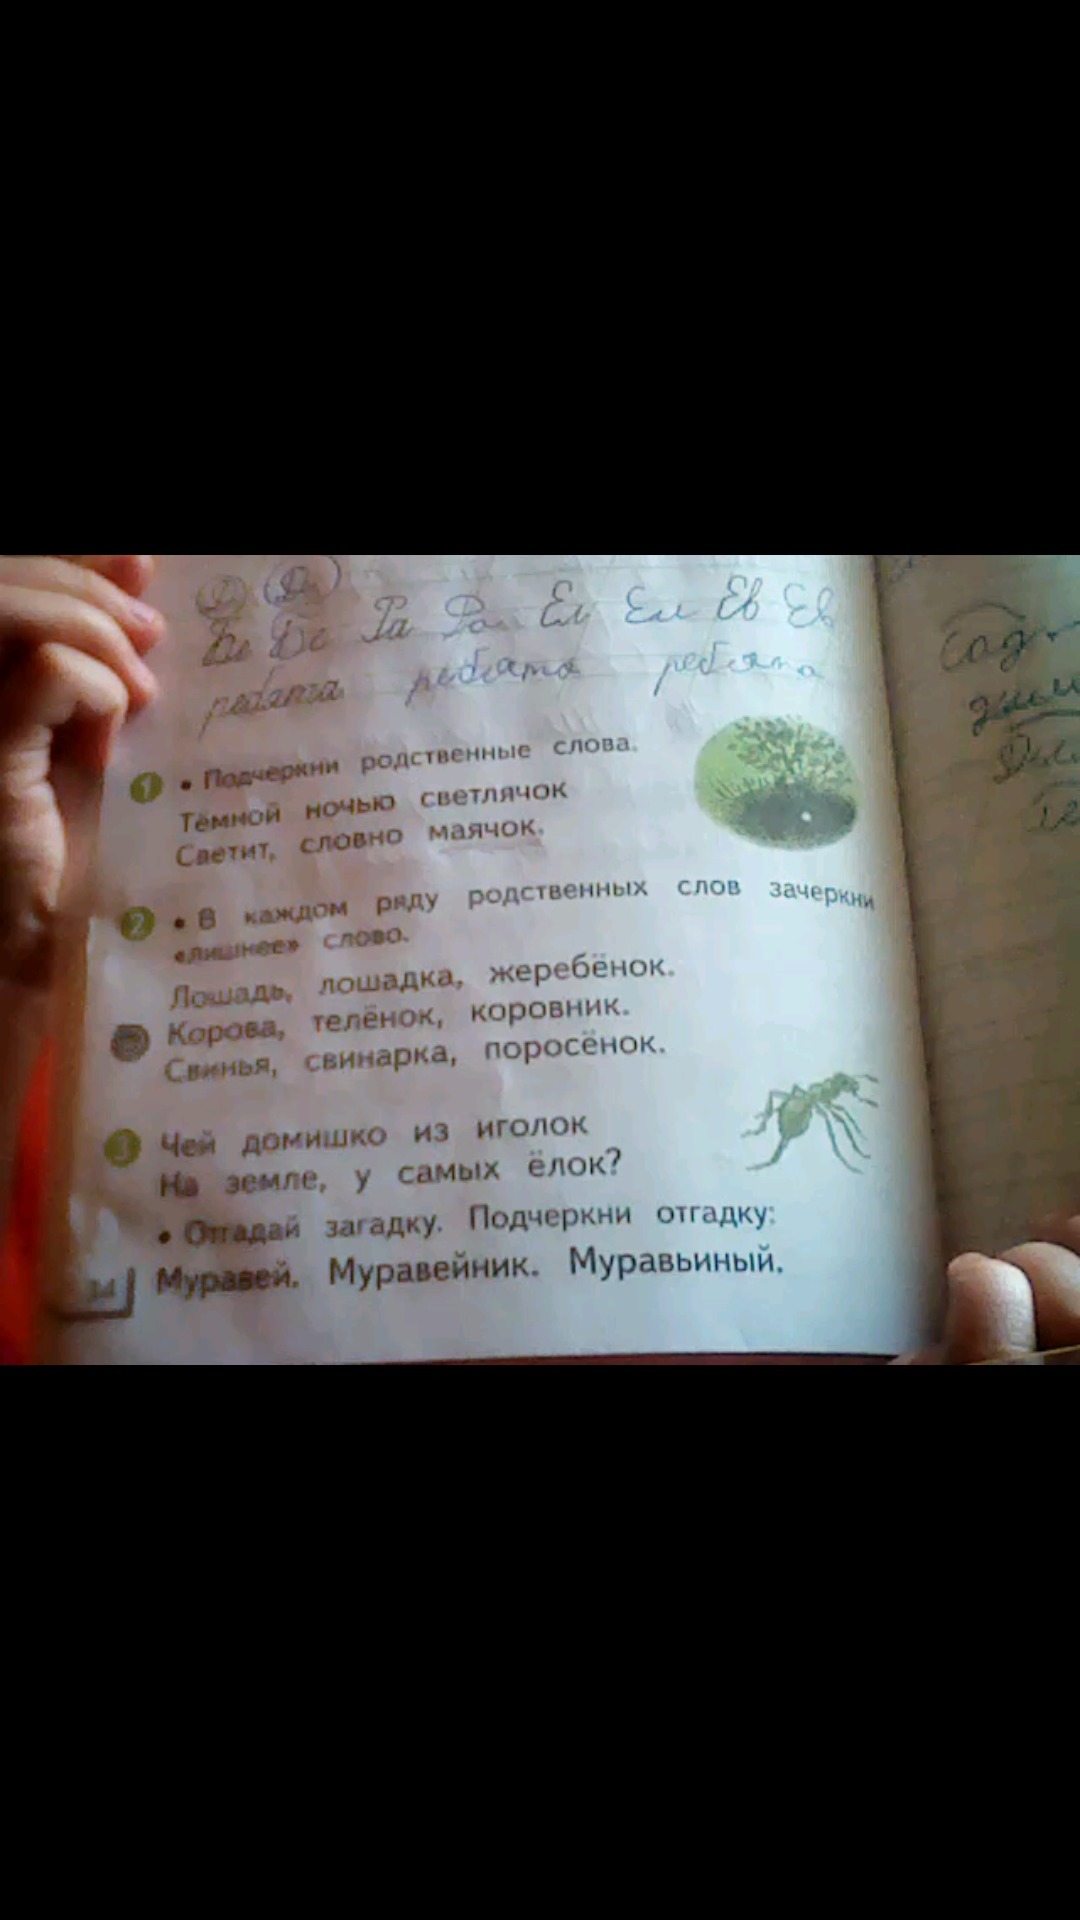 Ве Ве Ра Ра Ел Ел Ев Ев
ребята ребята ребята
1 • Подчеркни родственные слова.
Тёмной ночью светлячок
Светит, словно маячок.
2 • В каждом ряду родственных слов зачеркни
«лишнее» слово.
Лошадь, лошадка, жеребёнок.
Корова, телёнок, коровник.
Свинья, свинарка, поросёнок.
3 Чей домишко из иголок
На земле, у самых ёлок?
• Отгадай загадку. Подчеркни отгадку:
Муравей. Муравейник. Муравьиный.